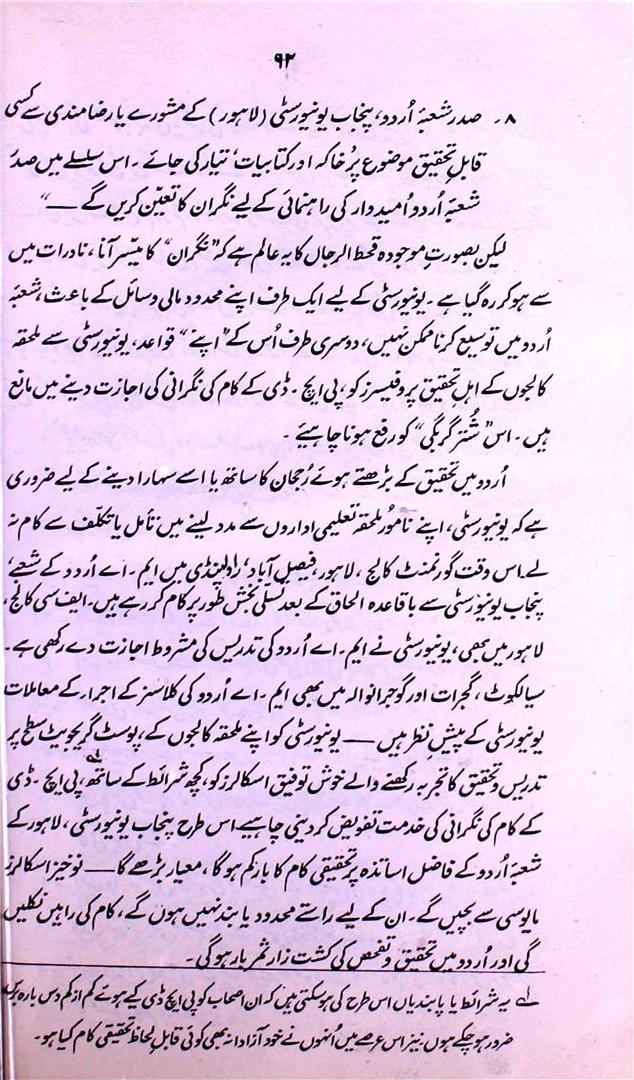 ۹۲
۸۔ صدر شعبۂ اُردو، پنجاب یونیورسٹی (لاہور) کے مشورے یا رضامندی سے کسی
قابلِ تحقیق موضوع پر خاکہ اور کتابیات تیار کی جائے۔ اس سلسلے میں صدر
شعبۂ اُردو اُمیدوار کی راہنمائی کے لیے نگران کا تعیّن کریں گے —"
لیکن بصورتِ موجودہ قحط الرجال کا یہ عالم ہے کہ "نگران" کا میّسر آنا، نادرات میں
سے ہو کر رہ گیا ہے۔ یونیورسٹی کے لیے ایک طرف اپنے محدود مالی وسائل کے باعث، شعبۂ
اُردو میں توسیع کرنا ممکن نہیں، دوسری طرف اُس کے "اپنے" قواعد، یونیورسٹی سے ملحقہ
کالجوں کے اہلِ تحقیق پروفیسرز کو، پی ایچ۔ ڈی کے کام کی نگرانی کی اجازت دینے میں مانع
ہیں۔ اس "شُتر گربگی" کو رفع ہونا چاہیئے۔
اُردو میں تحقیق کے بڑھتے ہوئے رُجحان کا ساتھ یا اسے سہارا دینے کے لیے ضروری
ہے کہ یونیورسٹی، اپنے نامور ملحقہ تعلیمی اداروں سے مدد لینے میں تأمل یا تکلّف سے کام نہ
لے۔ اس وقت گورنمنٹ کالج، لاہور، فیصل آباد، راولپنڈی میں ایم۔ اے اُردو کے شعبے،
پنجاب یونیورسٹی سے باقاعدہ الحاق کے بعد تسلی بخش طور پر کام کر رہے ہیں۔ ایف سی کالج،
لاہور میں بھی، یونیورسٹی نے ایم۔ اے اُردو کی تدریس کی مشروط اجازت دے رکھی ہے۔
سیالکوٹ، گجرات اور گوجرانوالہ میں بھی ایم۔ اے اُردو کی کلاسز کے اجراء کے معاملات
یونیورسٹی کے پیشِ نظر ہیں — یونیورسٹی کو اپنے ملحقہ کالجوں کے، پوسٹ گریجویٹ سطح پر
تدریس و تحقیق کا تجربہ رکھنے والے خوش توفیق اسکالرز کو، کچھ شرائط کے ساتھ؂۱، پی ایچ۔ ڈی
کے کام کی نگرانی کی خدمت تفویض کر دینی چاہیے۔ اس طرح پنجاب یونیورسٹی، لاہور کے
شعبۂ اُردو کے فاضل اساتذہ پر تحقیقی کام کا بار کم ہو گا، معیار بڑھے گا — نوخیز اسکالرز
مایوسی سے بچیں گے۔ ان کے لیے راستے محدود یا بند نہیں ہوں گے، کام کی راہیں نکلیں
گی اور اُردو میں تحقیق و تفحص کی کشت زار ثمر بار ہو گی۔
؂۱ یہ شرائط یا پابندیاں اس طرح کی ہو سکتی ہیں کہ ان اصحاب کو پی ایچ ڈی کیے ہوئے کم از کم دس بارہ برس
ضرور ہو چکے ہوں۔ نیز اس عرصے میں اُنہوں نے خود آزادانہ بھی کوئی قابلِ لحاظ تحقیقی کام کیا ہو۔